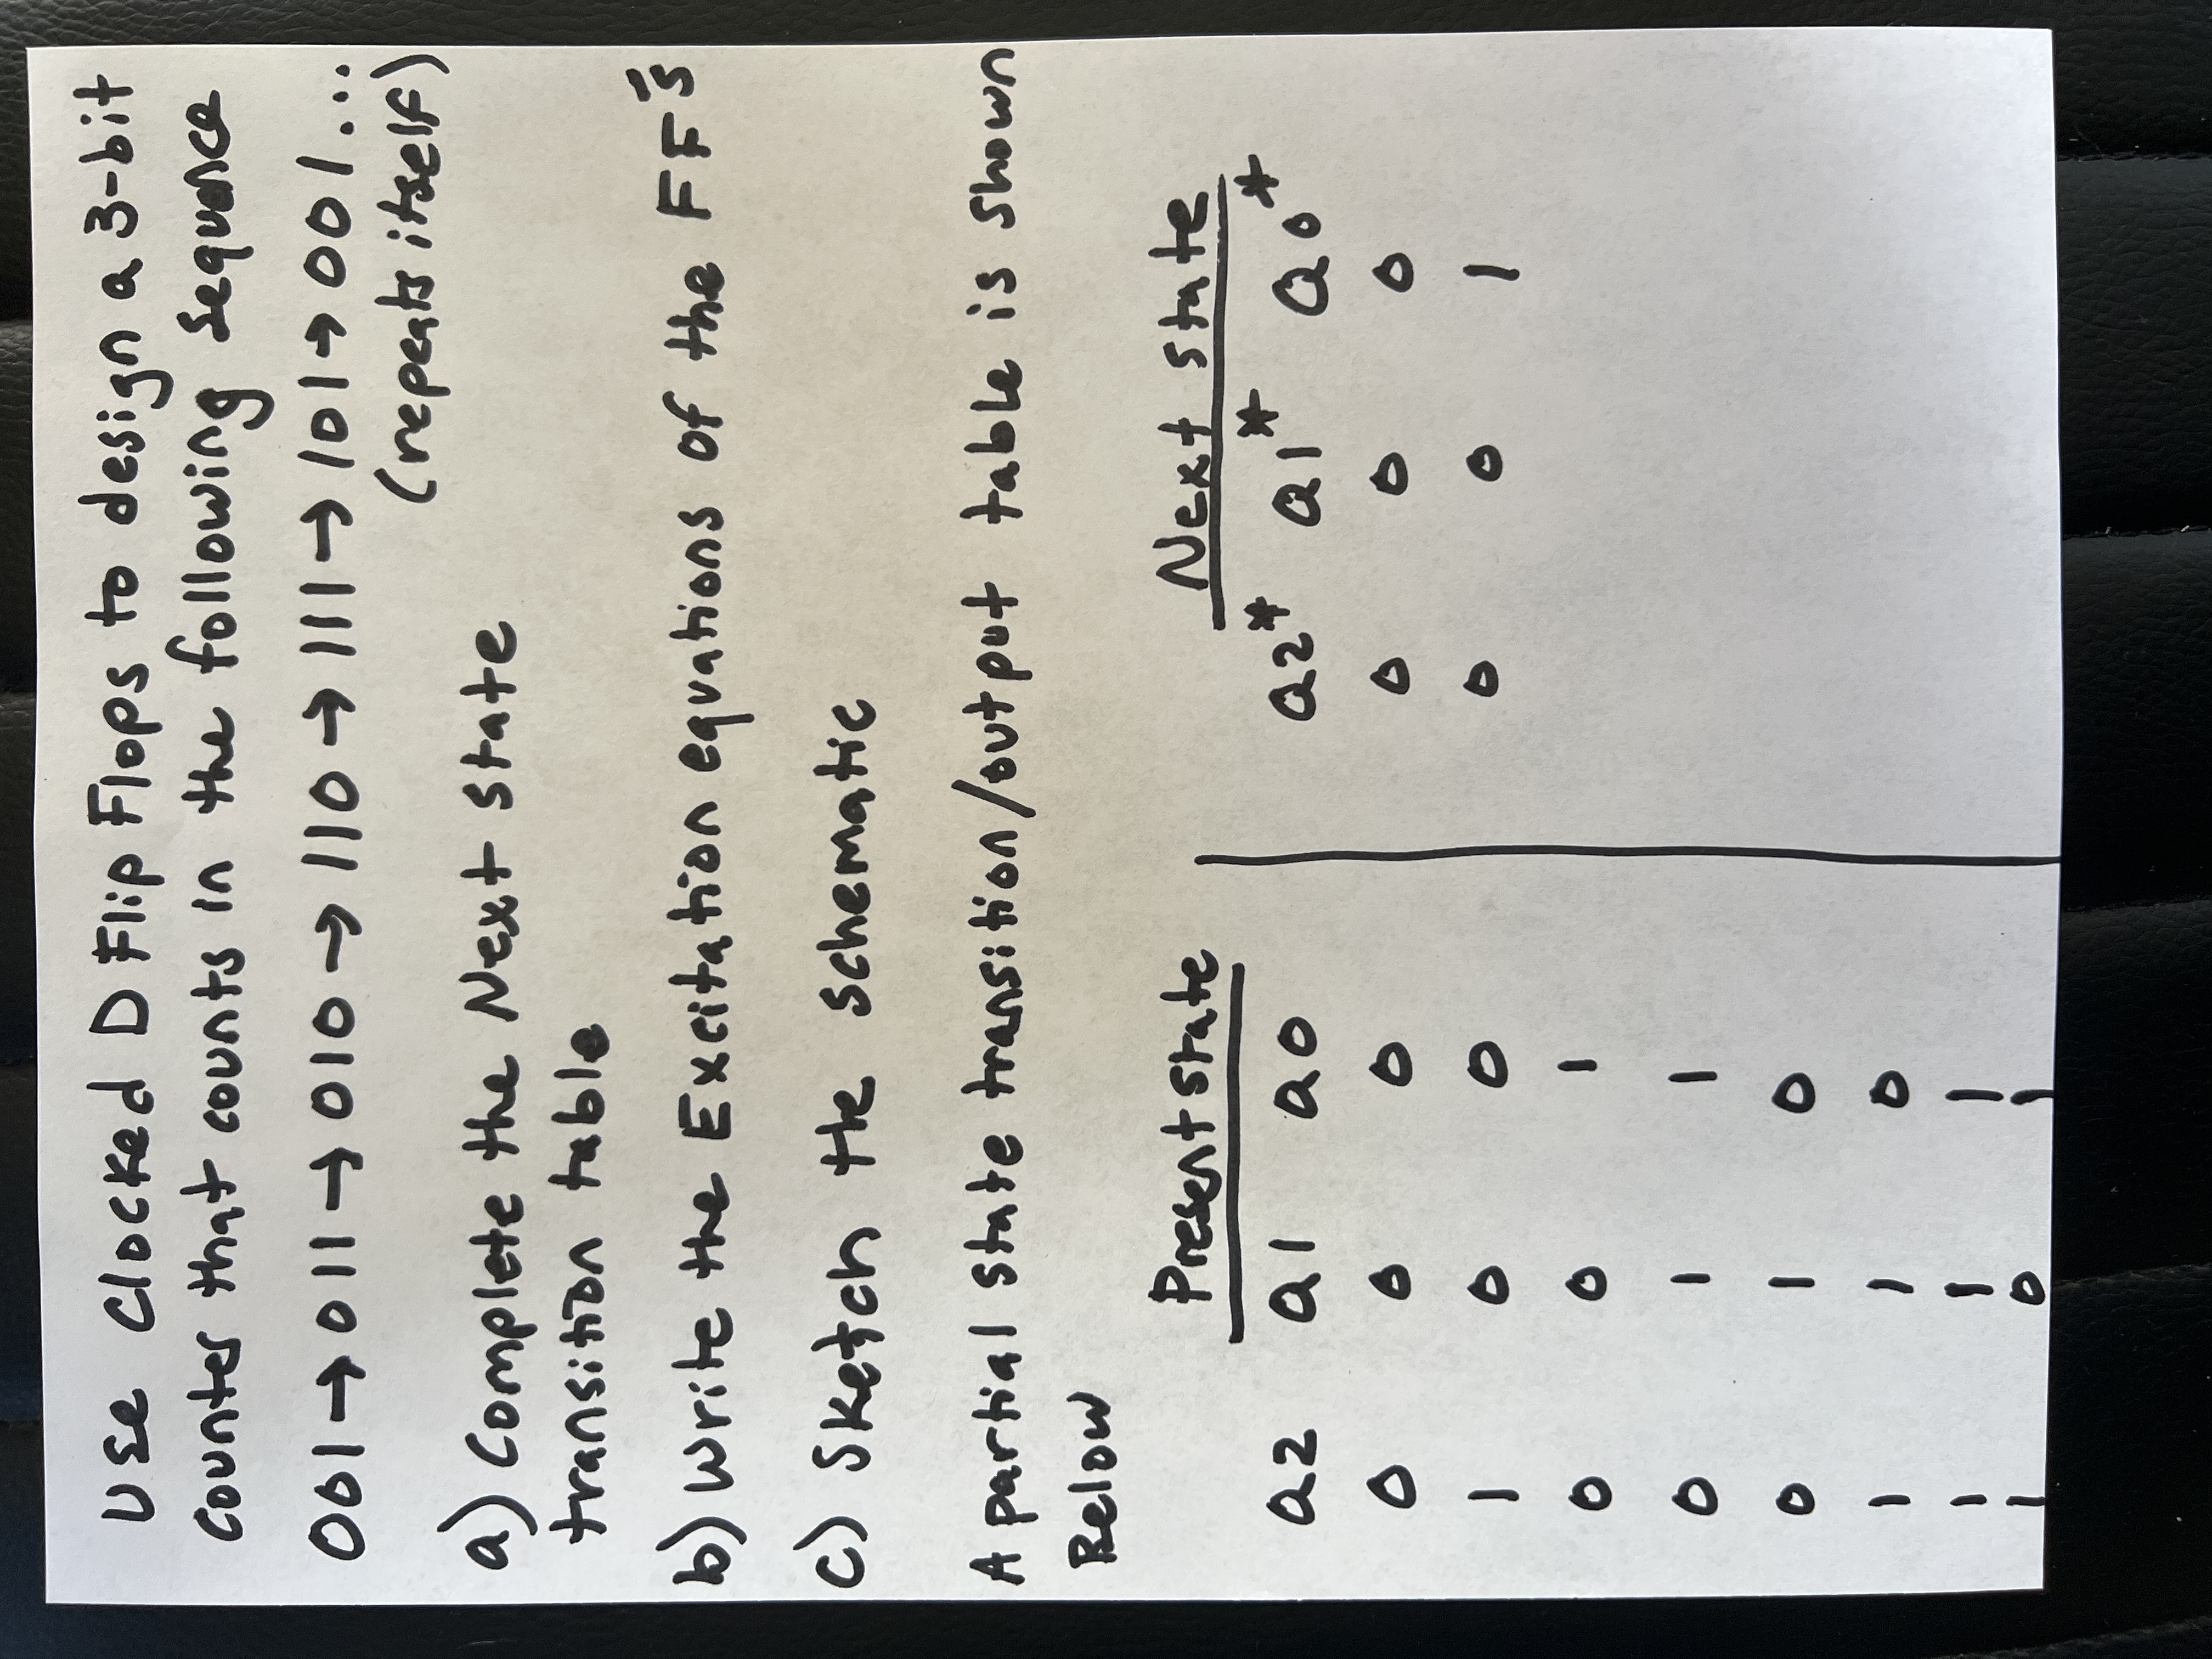 Use Clocked D Flip Flops to design a 3-bit
counter that counts in the following sequence
001→011→010→110→111→101→001...
(repeats itself)
a) Complete the Next state
transition table
b) Write the Excitation equations of the FF's
c) Sketch the schematic
A partial state transition/output table is shown
Below
Present state Next state
Q2 Q1 Q0 Q2* Q1* Q0*
0 0 0 0 0 0
1 0 0 0 0 1
0 0 1
0 1 1
0 1 0
1 1 0
1 1 1
1 0 1